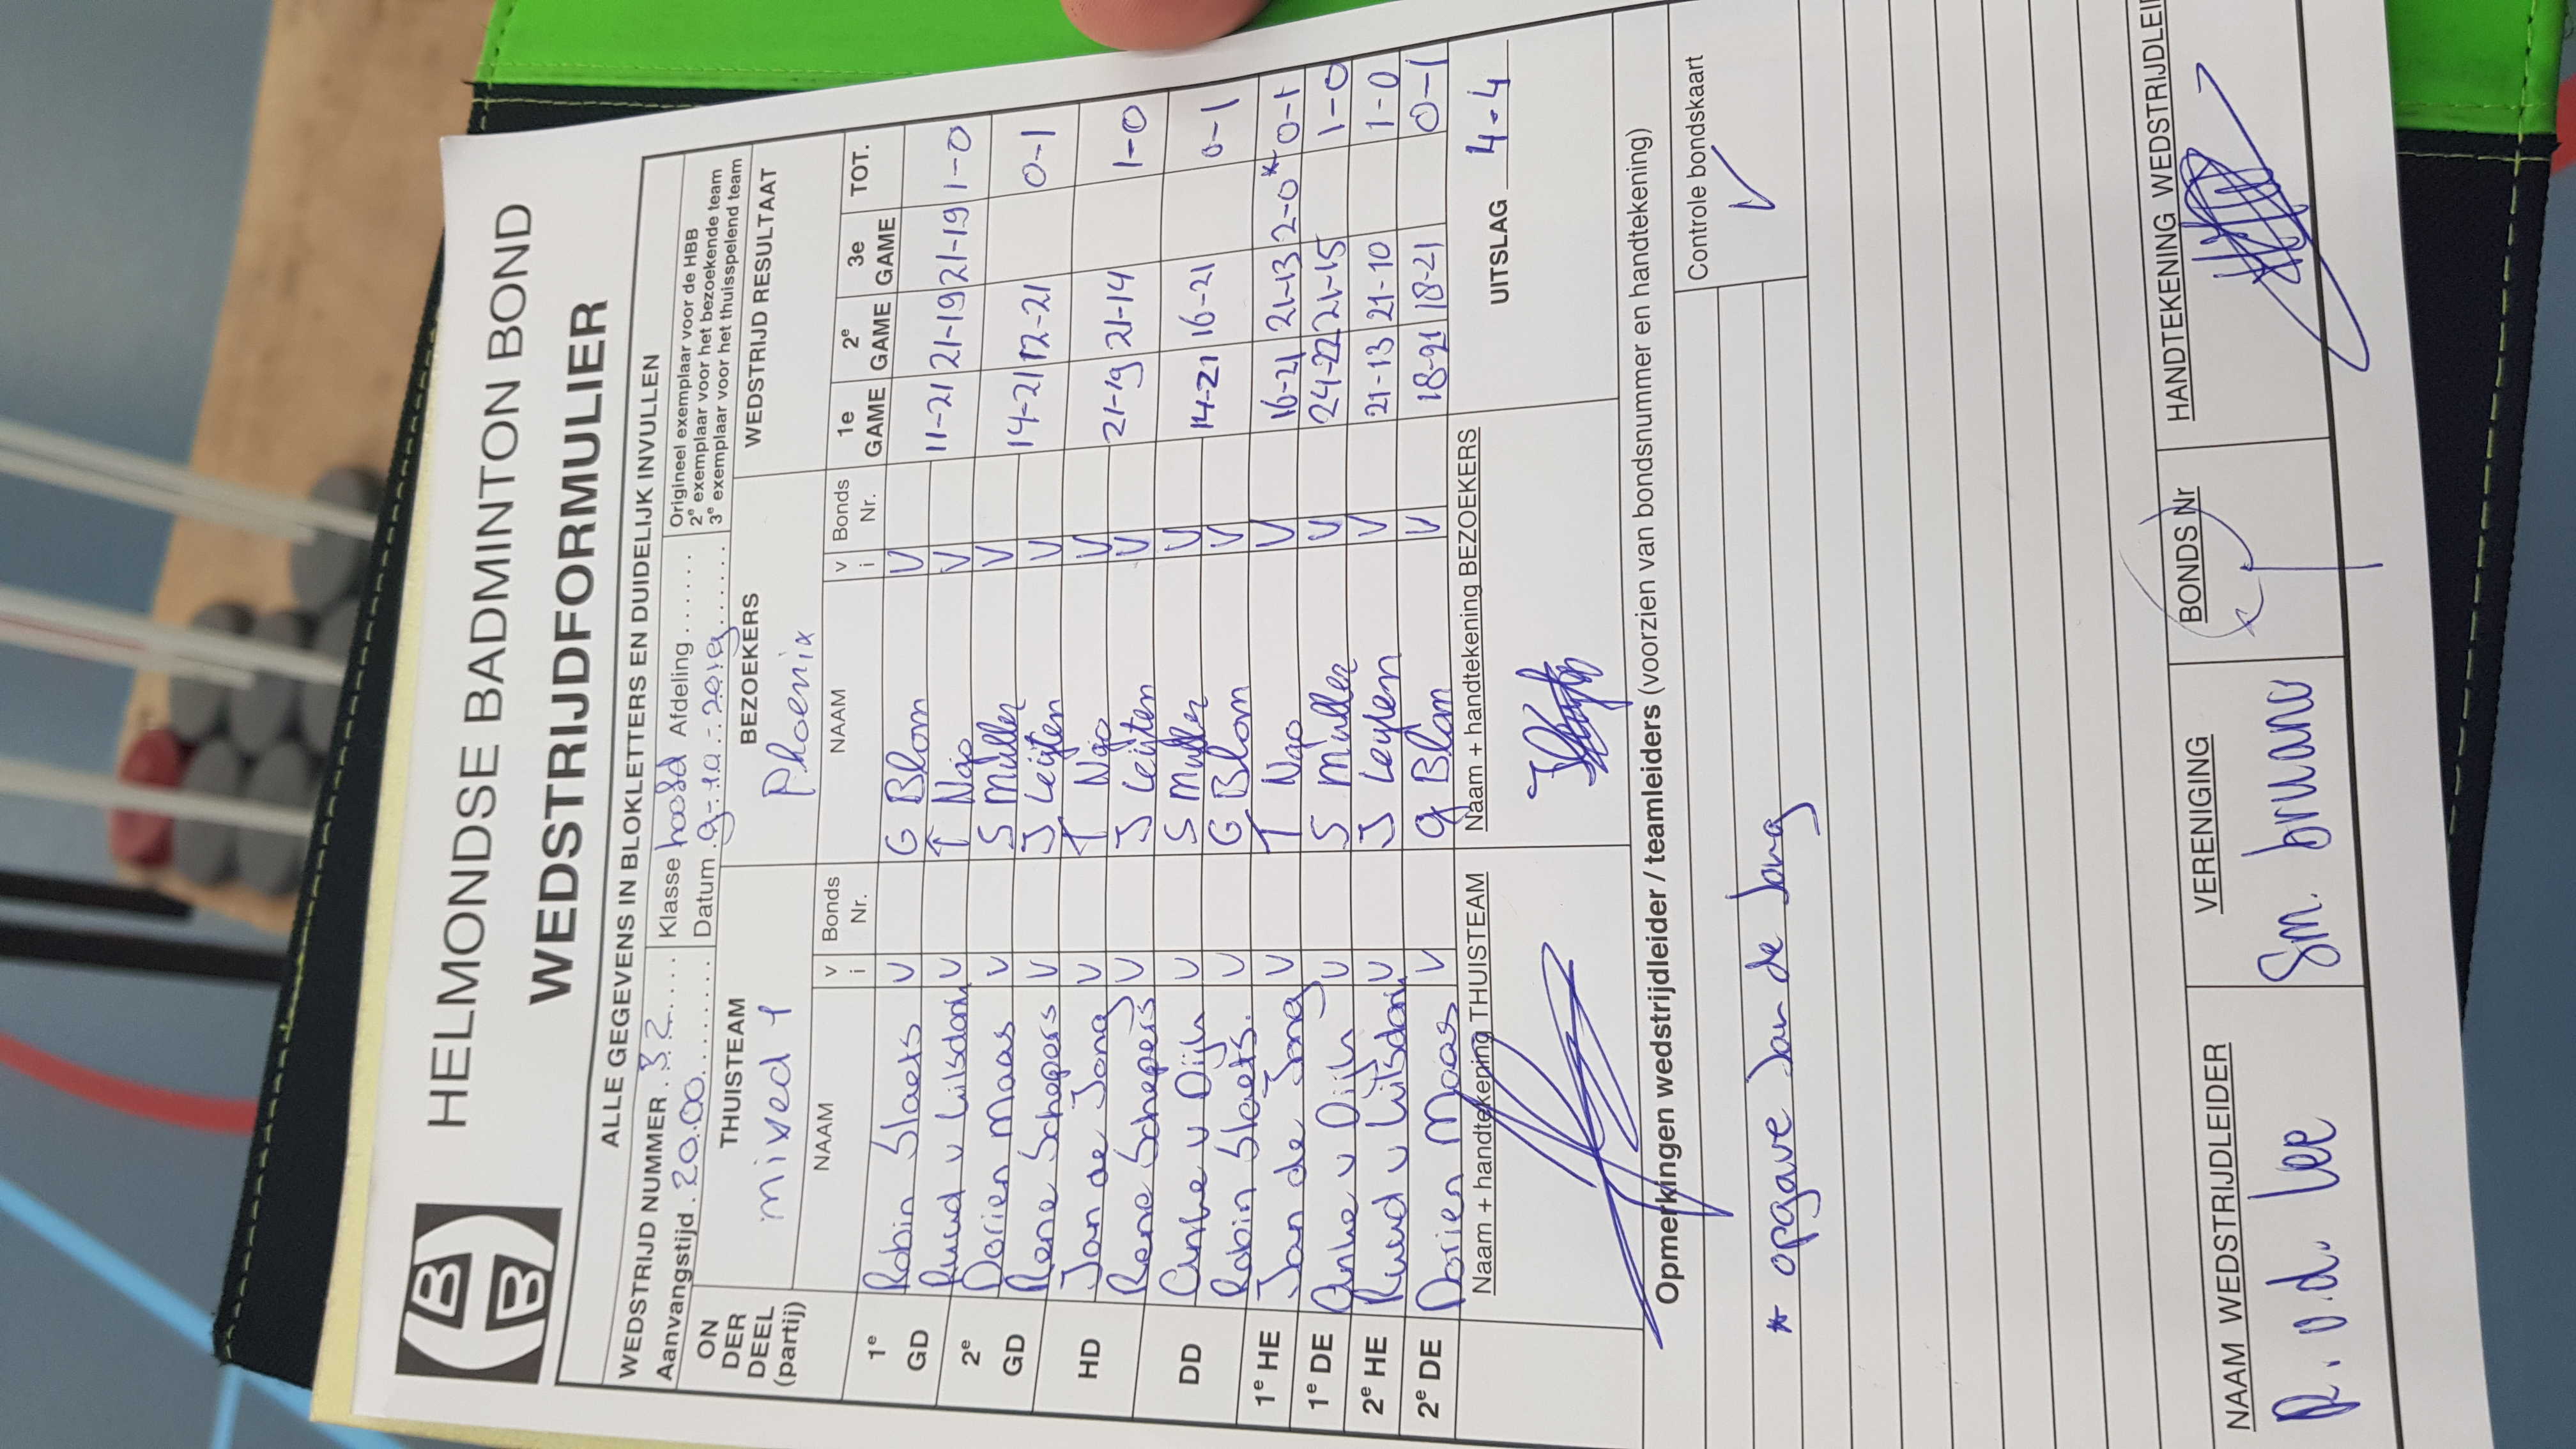 HELMONDSE BADMINTON BOND
WEDSTRIJDFORMULIER
ALLE GEGEVENS IN BLOKLETTERS EN DUIDELIJK INVULLEN
WEDSTRIJD NUMMER . 32 . . . . Klasse hoofd Afdeling . . . . . . Origineel exemplaar voor de HBB
Aanvangstijd . 20.00. . . . . . . . Datum . 9-10-2019 . . . . . . 2e exemplaar voor het bezoekende team
3e exemplaar voor het thuisspelend team
ON DER DEEL (partij) THUISTEAM BEZOEKERS WEDSTRIJD RESULTAAT
mixed 1 Phoenix
NAAM v i Bonds Nr. NAAM v i Bonds Nr. 1e GAME 2e GAME 3e GAME TOT.
1e GD Robin Slaets V G Blom V 11-21 21-19 21-19 1-0
Ruud v Lilsdonk V T Ngo V
2e GD Dorien Maas V S Muller V 14-21 12-21 0-1
Rene Schepers V J Leijten V
HD Jan de Jong V T Ngo V 21-19 21-14 1-0
Rene Schepers V J Leijten V
DD Anke v Dijk V S Muller V 14-21 16-21 0-1
Robin Slaets. V G Blom V
1e HE Jan de Jong V T Ngo V 16-21 21-13 2-0* 0-1
1e DE Anke v Dijk V S Muller V 24-22 21-15 1-0
2e HE Ruud v Lilsdonk V J Leyten V 21-13 21-10 1-0
2e DE Dorien Maas V G Blom V 18-21 18-21 0-1
Naam + handtekening THUISTEAM Naam + handtekening BEZOEKERS UITSLAG 4-4
Opmerkingen wedstrijdleider / teamleiders (voorzien van bondsnummer en handtekening)
Controle bondskaart
* opgave Jan de Jong
NAAM WEDSTRIJDLEIDER VERENIGING BONDS Nr HANDTEKENING WEDSTRIJDLEI
R. v.d. Lee